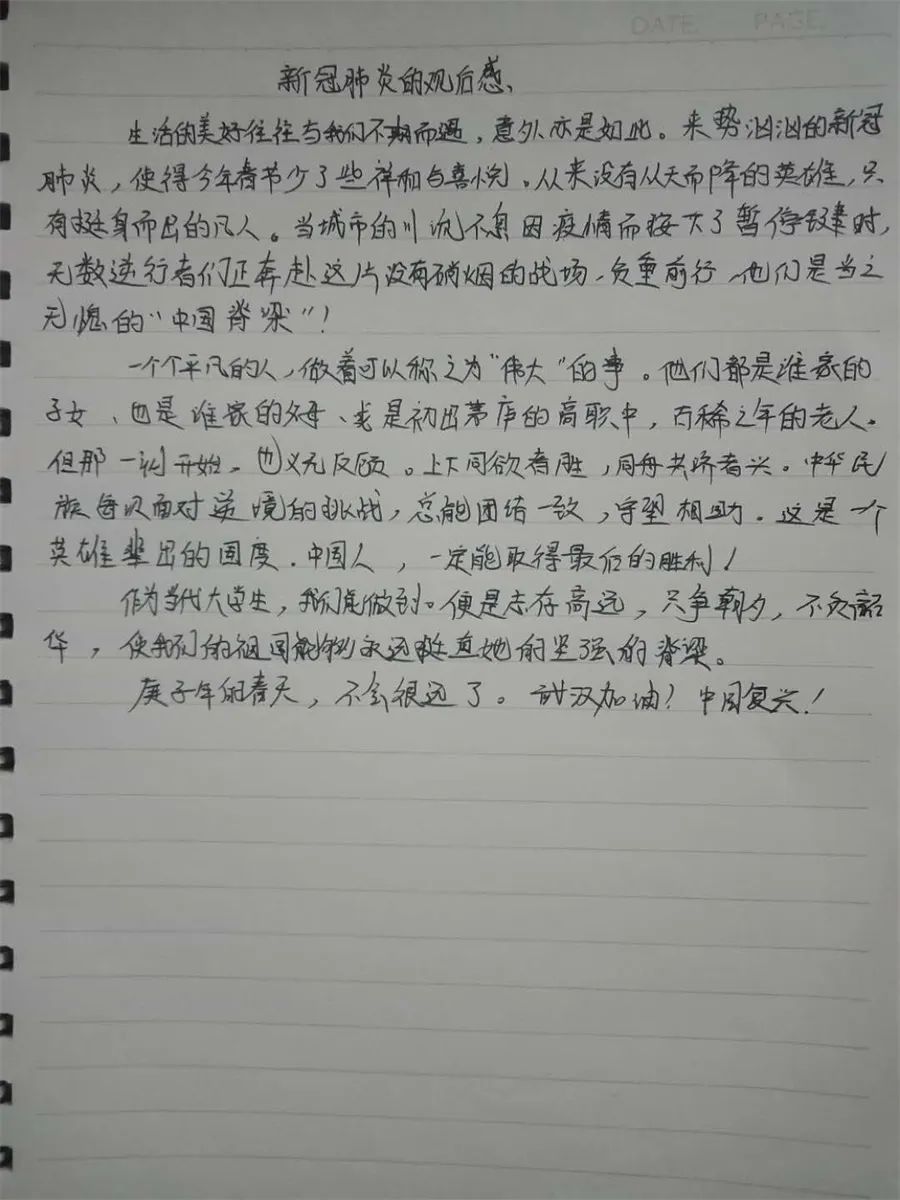 DATE. PAGE.
新冠肺炎的观后感、
生活的美好往往与我们不期而遇，意外亦是如此。来势汹汹的新冠
肺炎，使得今年春节少了些祥和与喜悦。从来没有从天而降的英雄，只
有挺身而出的凡人。当城市的川流不息因疫情而按大了暂停键时，
无数逆行者们正奔赴这片没有硝烟的战场、负重前行，他们是当之
无愧的“中国脊梁”！
一个个平凡的人，做着可以称之为“伟大”的事。他们都是谁家的
子女、也是谁家的父母、或是初出茅庐的高职中，古稀之年的老人。
但那一刻开始。也义无反顾。上下同欲者胜，同舟共济者兴。中华民
族每次面对逆境的挑战，总能团结一致，守望相助。这是一个
英雄辈出的国度．中国人，一定能取得最后的胜利！
作为当代大学生，我们能做到。便是志存高远，只争朝夕，不负韶
华，使我们的祖国能够永远挺直她的坚强的脊梁。
庚子年的春天，不会很远了。武汉加油！中国复兴！